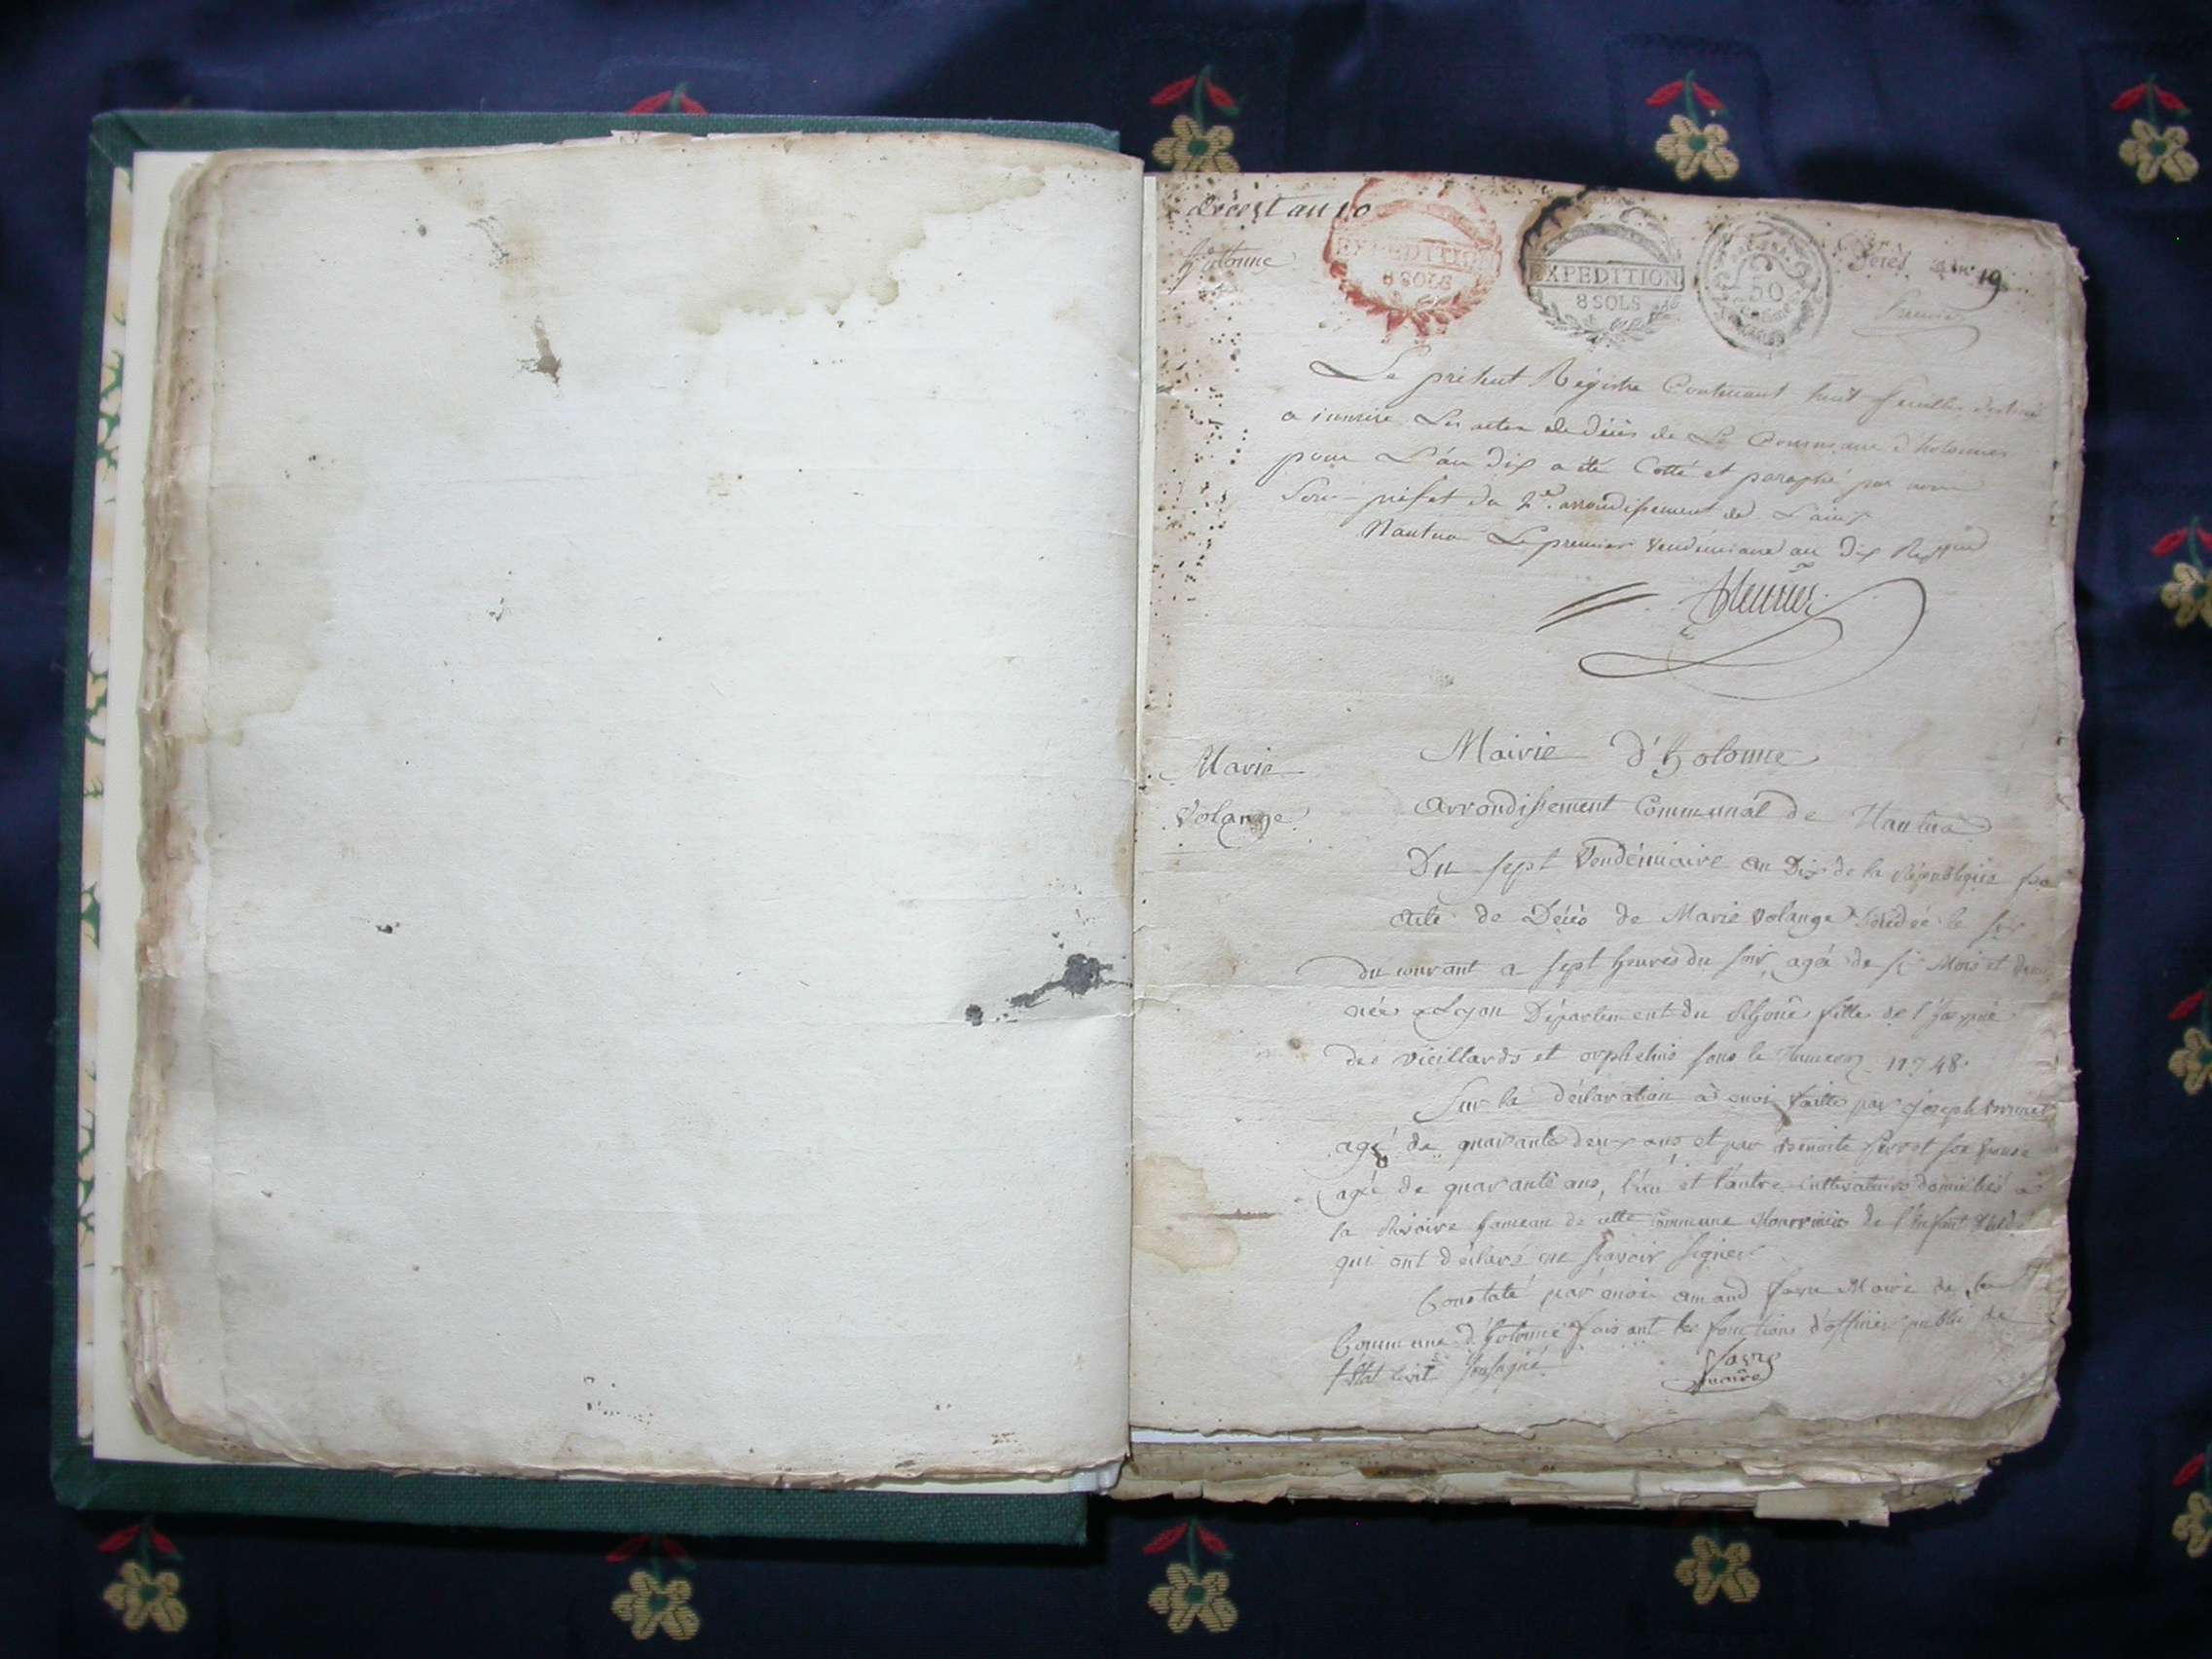 décest an 10
hotonne
EXPEDITION
8 SOLS
EXPEDITION
8 SOLS
50
19
Le présent Régistre Contenant huit feuilles destiné
a inscrire Les actes de décès de La Commune d'hotonnes
pour L'an dix a été Cotté et paraphé par nous
Sous-préfet du 2e. arrondissement de L'ain
Nantua Le premier vendémiaire an dix
Marie
Volange
Mairie d'hotonne
arrondissement Communal de Nantua
Du sept Vendémiaire an Dix de la République
acte de Décès de Marie Volange décédée le six
du courant a sept heures du soir, agée de six Mois et
née a Lyon Département du Rhône fille de l'hospice
des vieillards et orphelins sous le Numero 11748.
Sur la déclaration à moi faitte par joseph
agé de quarante deux ans et par benoite
agée de quarante ans, l'un et l'autre cultivateurs domiciliés a
la Rivoire hameau de cette Commune Nourriciers de l'Enfant
qui ont déclaré ne sçavoir signer
Constaté par moi amand favre Maire de la
Commune d'hotonne faisant les fonctions d'officier public de
l'état Civil soussigné
favre
maire